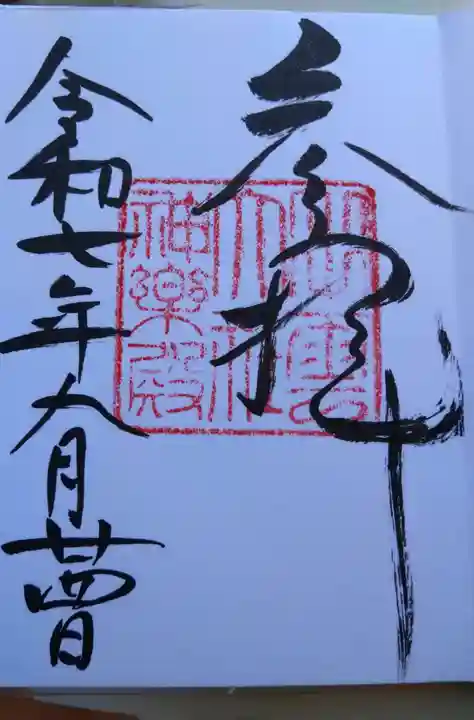 参拝
出雲
大社
神楽殿
令和七年九月廿四日